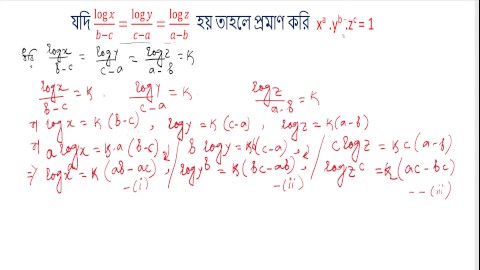 যদি log x/b−c = log y/c−a = log z/a−b হয় তাহলে প্রমাণ করি xᵃ.yᵇ.zᶜ = 1
ধরি, log x/b−c = log y/c−a = log z/a−b = k
log x/b−c = k, log y/c−a = k log z/a−b = k
⇒ log x = k (b−c), log y = k (c−a), log z = k (a−b)
⇒ a log x = k.a (b−c) / b log y = kb (c−a), / c log z = kc (a−b)
⇒ log xᵃ = k (ab−ac) / log yᵇ = k (bc−ab), / log zᶜ = k (ac−bc)
–(i) –(ii) –– (iii)